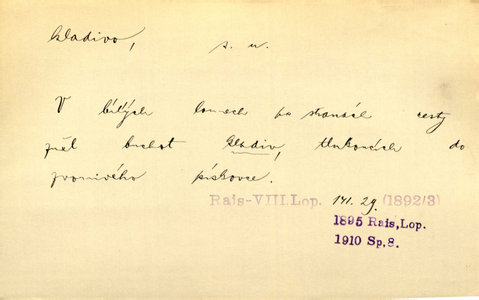 kladivo, s. n.
V bílých lomech po stranách cesty
zněl buchot kladiv, tlukoucích do
zvonivého pískovce.
Rais-VIII.Lop. 141.29. (1892/3)
1895 Rais,Lop.
1910 Sp.8.